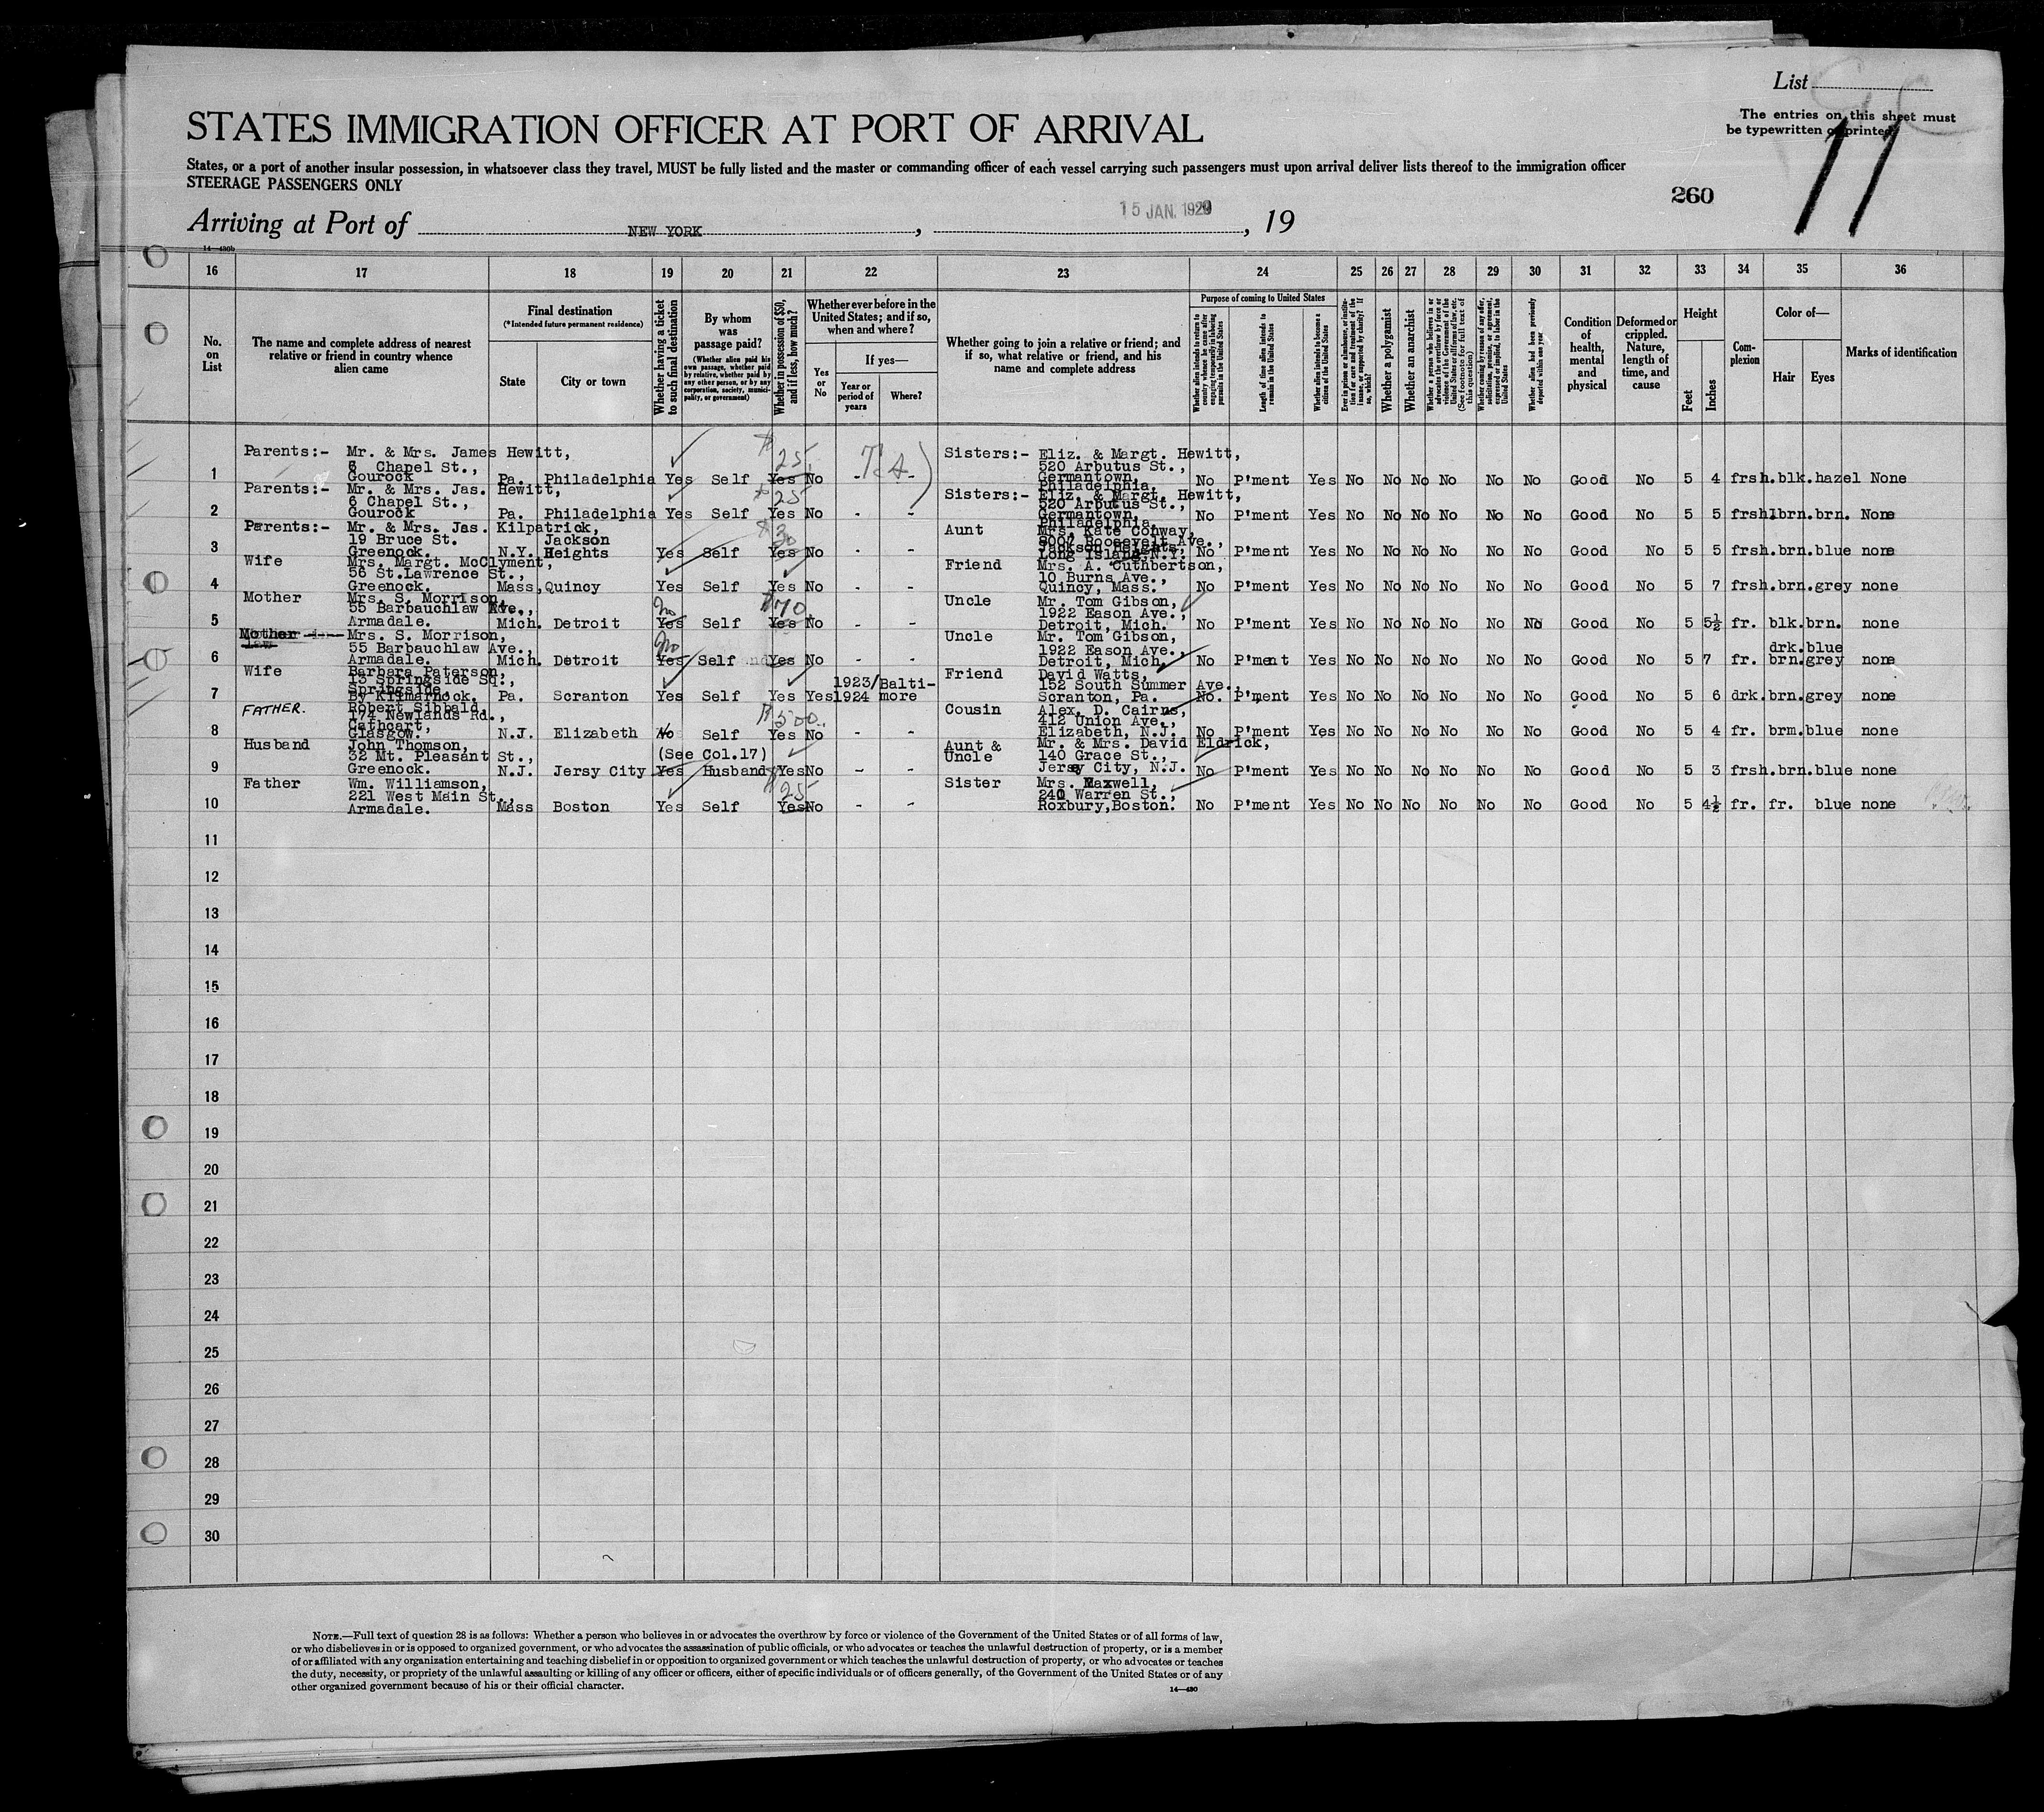 List
The entries on this sheet must
be typewritten or printed
STATES IMMIGRATION OFFICER AT PORT OF ARRIVAL
States, or a port of another insular possession, in whatsoever class they travel, MUST be fully listed and the master or commanding officer of each vessel carrying such passengers must upon arrival deliver lists thereof to the immigration officer
STEERAGE PASSENGERS ONLY
260
11
Arriving at Port of NEW YORK, 15 JAN. 1929, 19
14—430b
16 17 18 19 20 21 22 23 24 25 26 27 28 29 30 31 32 33 34 35 36
No. on List
The name and complete address of nearest relative or friend in country whence alien came
Final destination
(*Intended future permanent residence)
State
City or town
Whether having a ticket to such final destination
By whom was passage paid?
(Whether alien paid his own passage, whether paid by relative, whether paid by any other person, or by any corporation, society, municipality, or government)
Whether in possession of $50, and if less, how much?
Whether ever before in the United States; and if so, when and where?
Yes or No
If yes—
Year or period of years
Where?
Whether going to join a relative or friend; and if so, what relative or friend, and his name and complete address
Purpose of coming to United States
Whether alien intends to return to country whence he came after engaging temporarily in laboring pursuits in the United States
Length of time alien intends to remain in the United States
Whether alien intends to become a citizen of the United States
Ever in prison or almshouse, or institution for care and treatment of the insane, or supported by charity? If so, which?
Whether a polygamist
Whether an anarchist
Whether a person who believes in or advocates the overthrow by force or violence of the Government of the United States or all forms of law, etc. (See footnote for full text of this question)
Whether coming by reason of any offer, solicitation, promise, or agreement, expressed or implied, to labor in the United States
Whether alien had been previously deported within one year
Condition of health, mental and physical
Deformed or crippled. Nature, length of time, and cause
Height
Feet
Inches
Complexion
Color of—
Hair
Eyes
Marks of identification
Parents:- Mr. & Mrs. James Hewitt, $25 Sisters:- Eliz. & Margt. Hewitt,
6 Chapel St., 520 Arbutus St.,
Gourock Germantown,
1 Pa. Philadelphia Yes Self Yes No - - Philadelphia. No P'ment Yes No No No No No No Good No 5 4 frsh. blk. hazel None
Parents:- Mr. & Mrs. Jas. Hewitt, $25 Sisters:- Eliz. & Margt. Hewitt,
6 Chapel St., 520 Arbutus St.,
Gourock Germantown,
2 Pa. Philadelphia Yes Self Yes No - - Philadelphia. No P'ment Yes No No No No No No Good No 5 5 frsh lbrn. brn. None
Parents:- Mr. & Mrs. Jas. Kilpatrick, $30 Aunt Mrs. Kate Conway,
19 Bruce St. Jackson 8007 Roosevelt Ave.,
Greenock. Jackson Heights,
3 N.Y. Heights Yes Self Yes No - - Long Island N.Y. No P'ment Yes No No No No No No Good No 5 5 frsh. brn. blue none
Wife Mrs. Margt. McClyment, Friend Mrs. A. Cuthbertson,
56 St.Lawrence St., 10 Burns Ave.,
4 Greenock. Mass, Quincy Yes Self Yes No - - Quincy, Mass. No P'ment Yes No No No No No No Good No 5 7 frsh. brn. grey none
Mother Mrs. S. Morrison, No $70 Uncle Mr. Tom Gibson,
55 Barbauchlaw Ave., 1922 Eason Ave.,
5 Armadale. Mich. Detroit Yes Self Yes No - - Detroit, Mich. No P'ment Yes No No No No No No Good No 5 5½ fr. blk. brn. none
Mother in law Mrs. S. Morrison, No Uncle Mr. Tom Gibson,
55 Barbauchlaw Ave., 1922 Eason Ave., drk. blue
6 Armadale. Mich. Detroit Yes Self Yes No - - Detroit, Mich. No P'ment Yes No No No No No No Good No 5 7 fr. brn. grey none
Wife Barbara Paterson, Friend David Watts,
13 Springside Sq., 152 South Summer Ave.,
Springside, 1923/ Balti-
7 By Kilmarnock. Pa. Scranton Yes Self Yes Yes 1924 more Scranton, Pa. No. P'ment Yes No No No No No No Good No 5 6 drk. brn. grey none
FATHER. Robert Sibbald, $500 Cousin Alex. D. Cairns,
174 Newlands Rd., 412 Union Ave.,
Cathcart,
8 Glasgow. N.J. Elizabeth No Self Yes No - - Elizabeth, N.J. No P'ment Yes No No No No No No Good No 5 4 fr. brm. blue none
Husband John Thomson, (See Col.17) Aunt & Uncle Mr. & Mrs. David Eldrick,
32 Mt. Pleasant St., 140 Grace St.,
9 Greenock. N.J. Jersy City Yes Husband Yes No - - Jersy City, N.J. No P'ment Yes No No No No No No Good No 5 3 frsh. brn. blue none
Father Wm. Williamson, $25 Sister Mrs. Maxwell,
221 West Main St., 240 Warren St.,
10 Armadale. Mass Boston Yes Self Yes No - - Roxbury, Boston. No P'ment Yes No No No No No No Good No 5 4½ fr. fr. blue none
11
12
13
14
15
16
17
18
19
20
21
22
23
24
25
26
27
28
29
30
NOTE.—Full text of question 28 is as follows: Whether a person who believes in or advocates the overthrow by force or violence of the Government of the United States or of all forms of law,
or who disbelieves in or is opposed to organized government, or who advocates the assassination of public officials, or who advocates or teaches the unlawful destruction of property, or is a member
of or affiliated with any organization entertaining and teaching disbelief in or opposition to organized government or which teaches the unlawful destruction of property, or who advocates or teaches
the duty, necessity, or propriety of the unlawful assaulting or killing of any officer or officers, either of specific individuals or of officers generally, of the Government of the United States or of any
other organized government because of his or their official character.
14—430